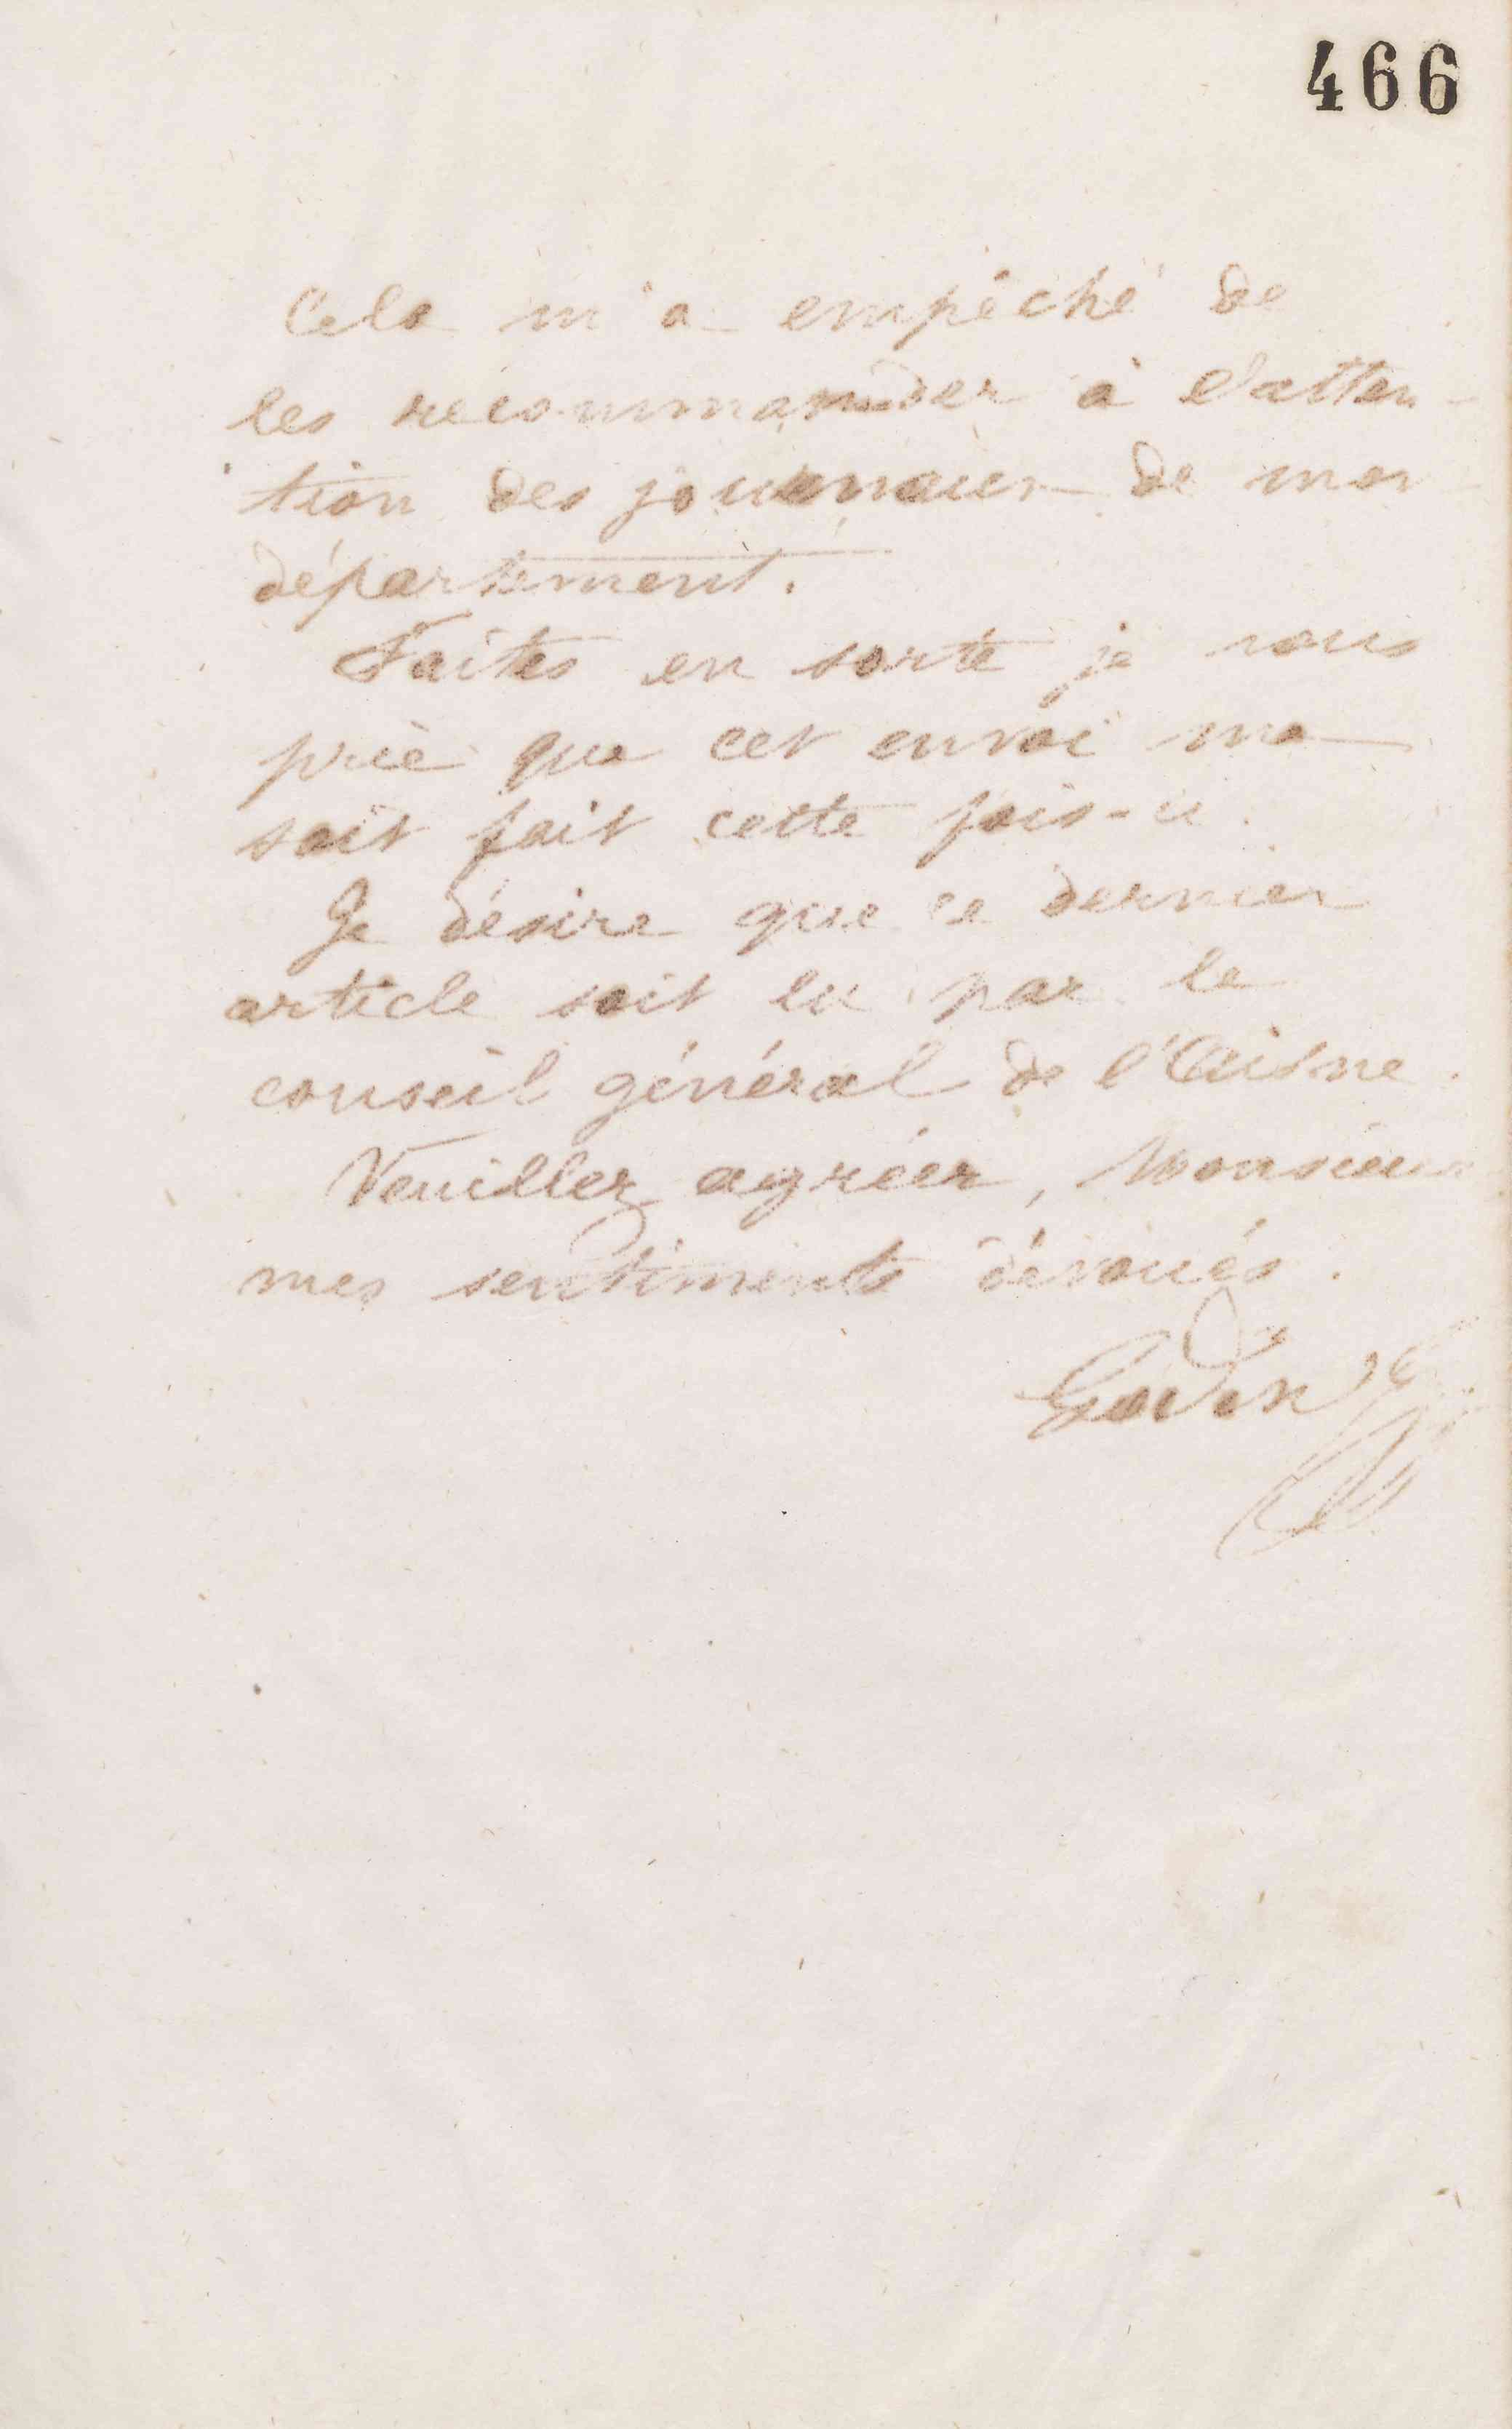 466
Cela m'a empêché de
les recommander à l'atten-
tion des journaux de mon
département.
Faites en sorte je vous
prie que cet envoi me
soit fait cette fois-ci.
Je désire que ce dernier
article soit lu par le
conseil général de l'Aisne.
Veuillez agréer, Monsieur
mes sentiments dévoués.
Godin